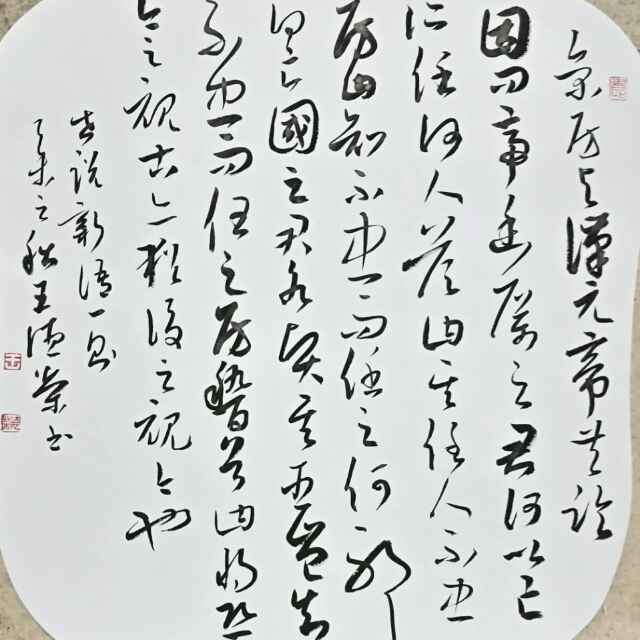 京房与漢元帝共論
因問帝幽厲之君何以亡
所任何人答曰其任人不忠
房曰知不忠而任之何邪
曰亡國之君各賢其臣豈知
不忠而任之房稽首曰將恐
今之視古亦猶後之視今也
世說新語一則
未之秋王德榮書